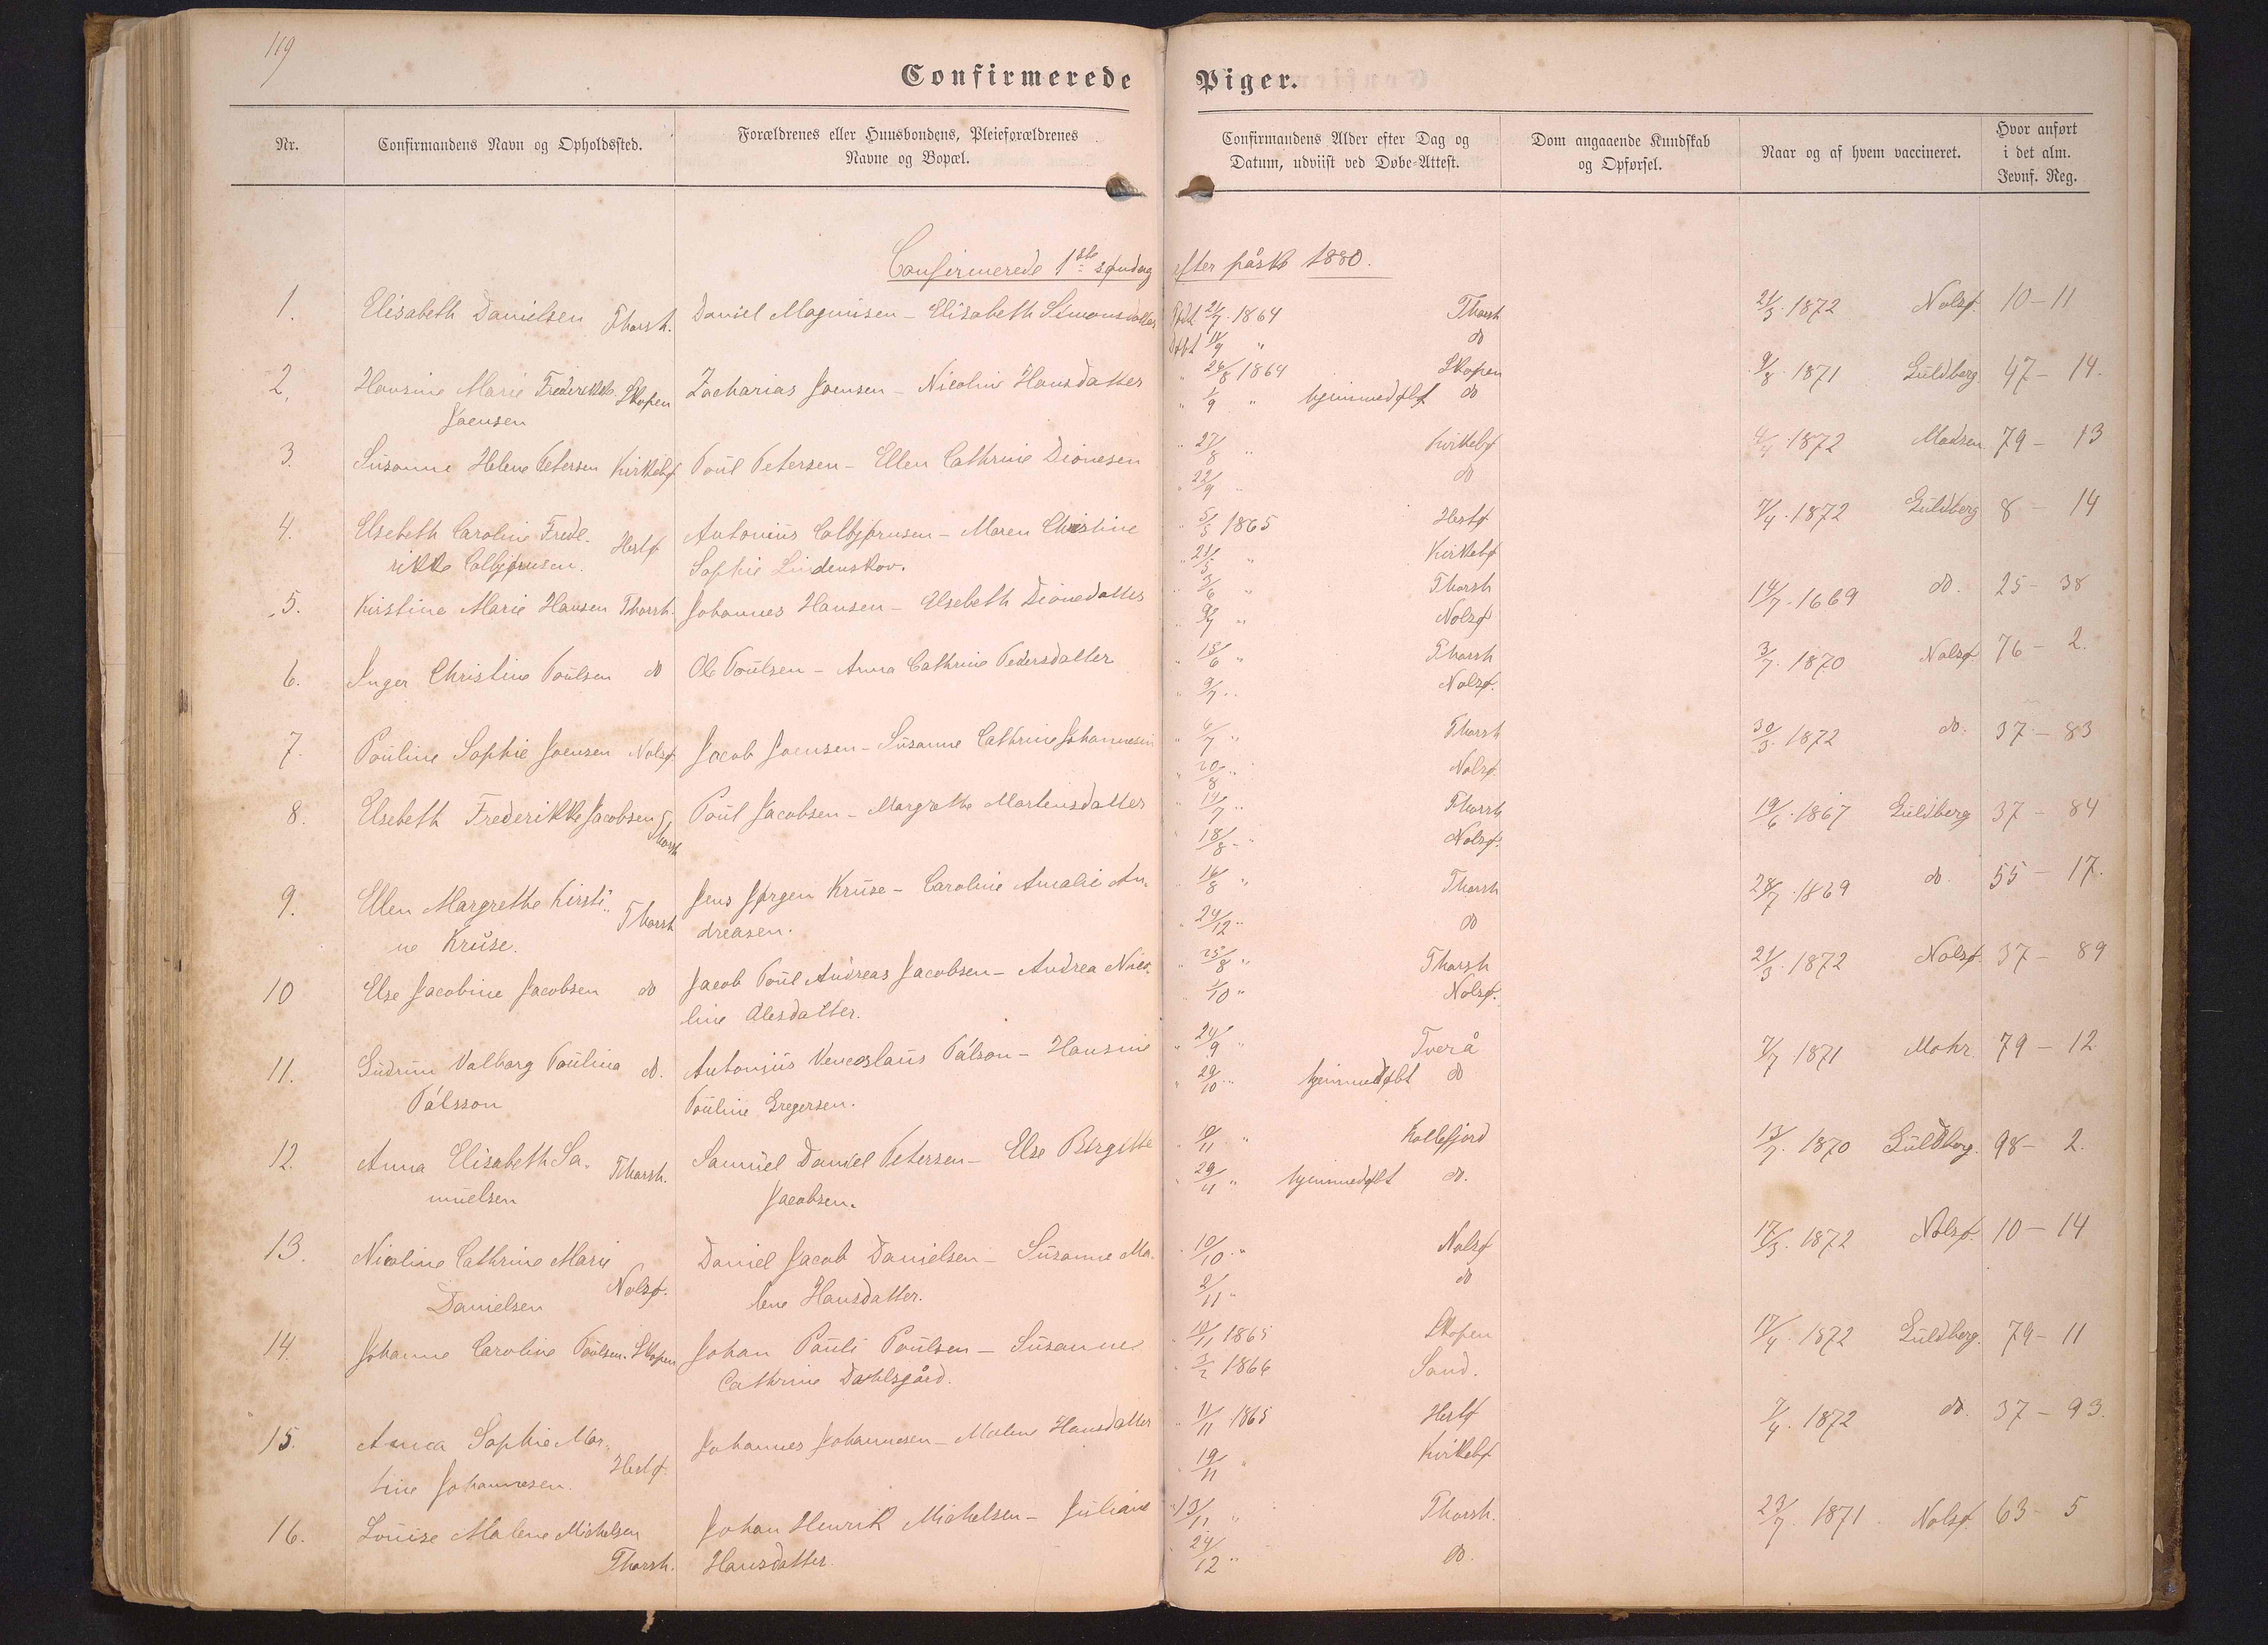 119
Confirmerede Piger.
Nr.
Confirmandens Navn og Opholdssted.
Forældrenes eller Huusbondens, Pleieforældrenes
Navne og Bopæl.
Confirmandens Alder efter Dag og
Datum, udviist ved Døbe-Attest.
Dom angaaende Kundskab
og Opførsel.
Naar og af hvem vaccineret.
Hvor anført
i det alm.
Jevnf. Reg.
Confirmerede 1ste søndag efter påske 1880.
1. Elisabeth Danielsen Thorsh. Daniel Magnusen - Elisabeth Simonsdatter Født 21/7 1864 Thorsh 21/3 1872 Nolsø 10-11
Døbt 11/9 " do
2. Hansine Marie Frederikke Skopen Zacharias Joensen - Nicoline Hansdatter " 26/8 1864 Skopen 9/8 1871 Guldberg 47-14.
Joensen " 1/9 " hjemmedøbt do
3. Susanne Helene Petersen Kirkebø Poul Petersen - Ellen Cathrine Dionesen " 27/8 " Kirkebø 4/4 1872 Madsen 79-13
" 22/9 " do
4. Elsebeth Caroline Frede- Hestø Antonius Colbjørnsen - Maren Christine " 5/5 1865 Hestø 7/4 1872 Guldberg 8-14
rikke Colbjørnsen. Sophie Lindenskov. " 21/5 " Kirkebø
5. Kirstine Marie Hansen Thorsh. Johannes Hansen - Elsebeth Dionedatter " 3/6 " Thorsh 14/7 1669 do. 25-38
" 9/7 " Nolsø
6. Inger Christine Poulsen do Ole Poulsen - Anna Cathrine Pedersdatter " 15/6 " Thorsh 3/7 1870 Nolsø 76-2.
" 9/7 " Nolsø.
7. Pouline Sophie Joensen Nolsø Jacob Joensen - Susanne Cathrine Johannesen " 6/7 " Thorsh 30/3 1872 do. 37-83
" 20/8 " Nolsø.
8. Elsebeth Frederikke Jacobsen Thorsh Poul Jacobsen - Margrethe Martensdatter " 14/7 " Thorsh 19/6 1867 Guldberg 37-84
" 18/8 " Nolsø.
9. Ellen Margrethe Kirsti- Thorsh Jens Jørgen Kruse - Caroline Amalie An- " 16/8 " Thorsh 28/7 1869 do. 55-17.
ne Kruse. dreasen. " 24/12 " do
10 Else Jacobine Jacobsen do Jacob Poul Andreas Jacobsen - Andrea Nico- " 25/8 " Thorsh 21/3 1872 Nolsø. 37-89
line Olesdatter. " 1/10 " Nolsø.
11. Gudrun Valborg Paulina do. Antonius Venceslaus Pálson - Hansine " 24/9 " Tverå 7/7 1871 Mohr. 79-12.
Pálsson Pouline Gregersen. " 29/10 " hjemmedøbt do
12. Anna Elisabeth Sa- Thorsh. Samuel Daniel Petersen - Else Birgitte " 10/11 " Kollefjord 13/7 1870 Guldberg. 98-2.
muelsen Jacobsen. " 29/11 " hjemmedøbt do.
13. Nicoline Cathrine Marie Daniel Jacob Danielsen - Susanne Ma- " 10/10 " Nolsø 17/3 1872 Nolsø. 10-14
Danielsen Nolsø. lene Hansdatter. " 2/11 " do
14. Johanne Caroline Poulsen. Skopen Johan Pauli Poulsen - Susanne " 10/11 1865 Skopen 17/4 1872 Guldberg. 79-11
Cathrine Dahlsgård. " 3/2 1866 Sand.
15. Anna Sophie Mar- Johannes Johannesen - Malene Hansdatter " 11/11 1865 Hestø 7/4 1872 do. 37-93.
tine Johannesen. Hestø. " 19/11 " Kirkebø
16. Louise Malene Michelsen Johan Henrik Michelsen - Juliane " 13/11 " Thorsh. 23/7 1871. Nolsø. 63-5
Thorsh. Hansdatter. " 24/12 " do.